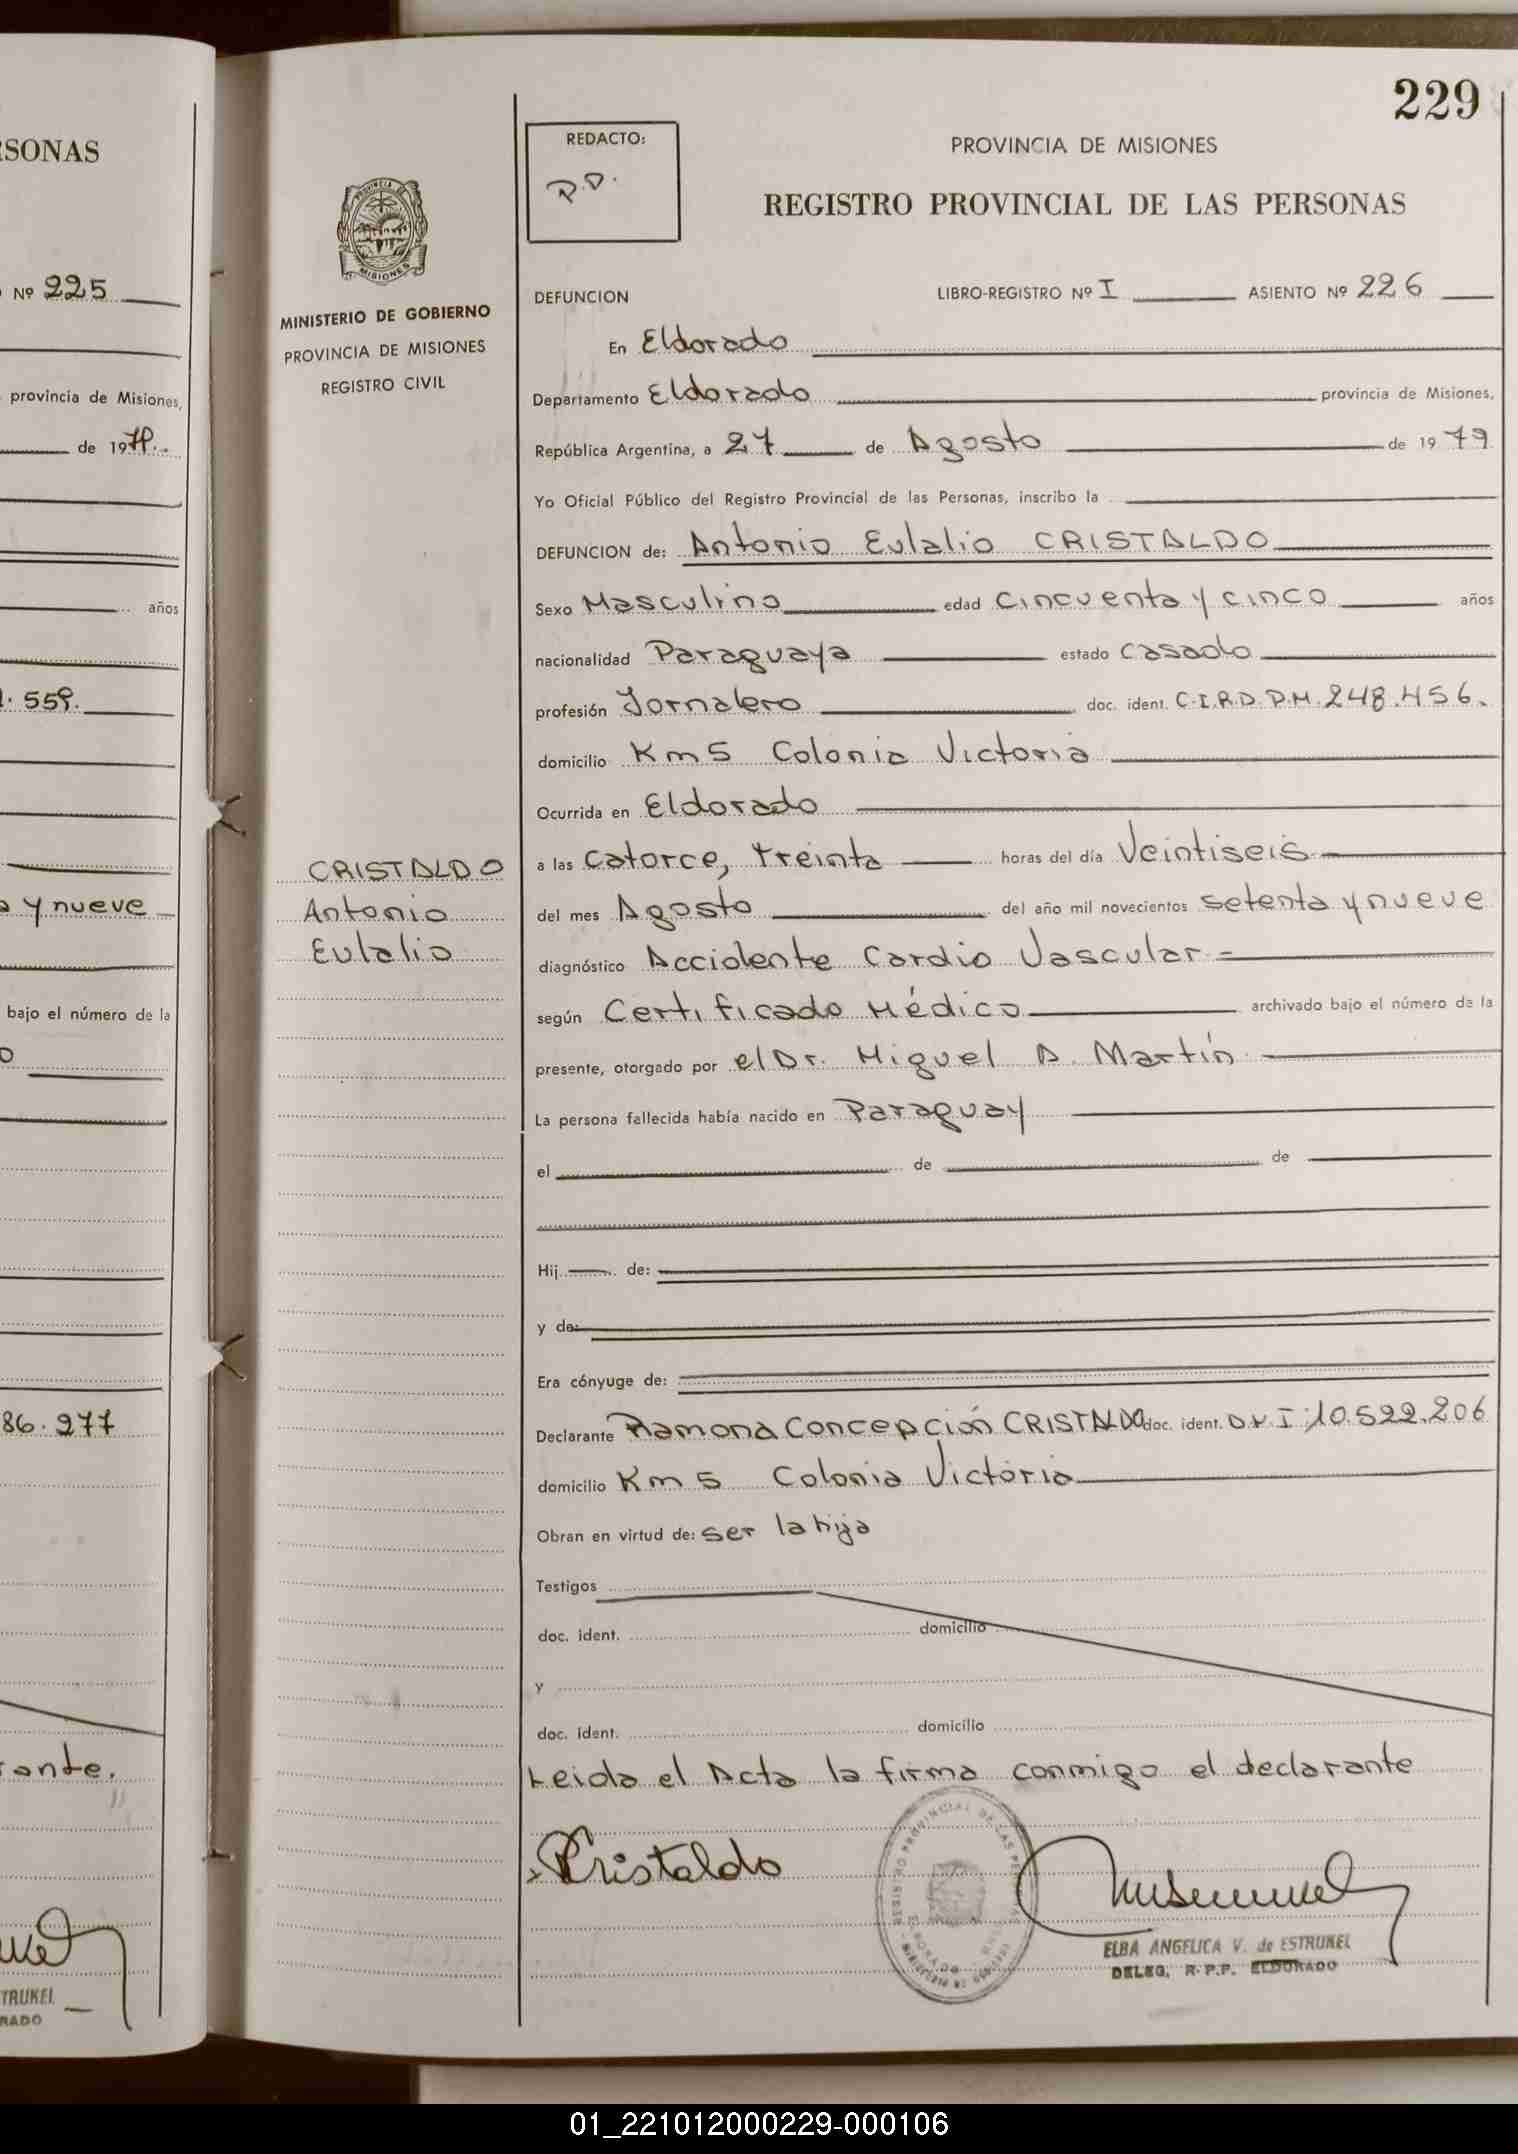 RSONAS
Nº 225
provincia de Misiones,
de 1979.
años
559.
y nueve
bajo el número de la
86.277
rante.
TRUKEL
RADO
229
REDACTO:
R.D.
PROVINCIA DE MISIONES
REGISTRO PROVINCIAL DE LAS PERSONAS
PROVINCIA DE
MISIONES
MINISTERIO DE GOBIERNO
PROVINCIA DE MISIONES
REGISTRO CIVIL
CRISTALDO
Antonio
Eulalio
DEFUNCION LIBRO-REGISTRO Nº I ASIENTO Nº 226
En Eldorado
Departamento Eldorado provincia de Misiones,
República Argentina, a 27 de Agosto de 1979
Yo Oficial Público del Registro Provincial de las Personas, inscribo la
DEFUNCION de: Antonio Eulalio CRISTALDO
Sexo Masculino edad cincuenta y cinco años
nacionalidad Paraguaya estado casado
profesión Jornalero doc. ident. C.I.R.D.P.M. 248.456.
domicilio Km 5 Colonia Victoria
Ocurrida en Eldorado
a las catorce, treinta horas del día Veintiseis
del mes Agosto del año mil novecientos setenta y nueve
diagnóstico Accidente Cardio Vascular -
según Certificado Médico archivado bajo el número de la
presente, otorgado por el Dr. Miguel A. Martín
La persona fallecida había nacido en Paraguay
el de de
Hij de:
y de:
Era cónyuge de:
Declarante Ramona Concepción CRISTALDO doc. ident. D.N.I. 10.522.206
domicilio Km 5 Colonia Victoria
Obran en virtud de: ser la hija
Testigos
doc. ident. domicilio
y
doc. ident. domicilio
Leida el Acta la firma conmigo el declarante
RCristaldo
REGISTRO PROVINCIAL DE LAS PERSONAS
ELDORADO
ELBA ANGELICA V. de ESTRUKEL
DELEG. R.P.P. ELDORADO
01_221012000229-000106